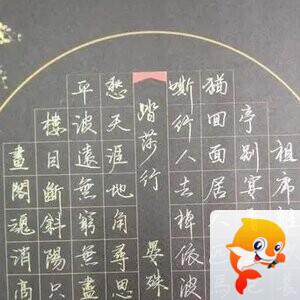 祖席
亭別宴
猶回面居
嘶行人去棹依波
踏莎行 晏殊
愁天涯地角尋思
平波遠無窮無盡
樓目斷斜陽只
畫閣魂消高